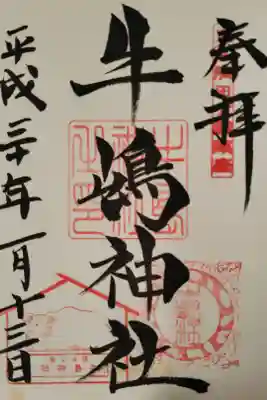 奉拝
牛嶋神社
平成三十年一月十三日